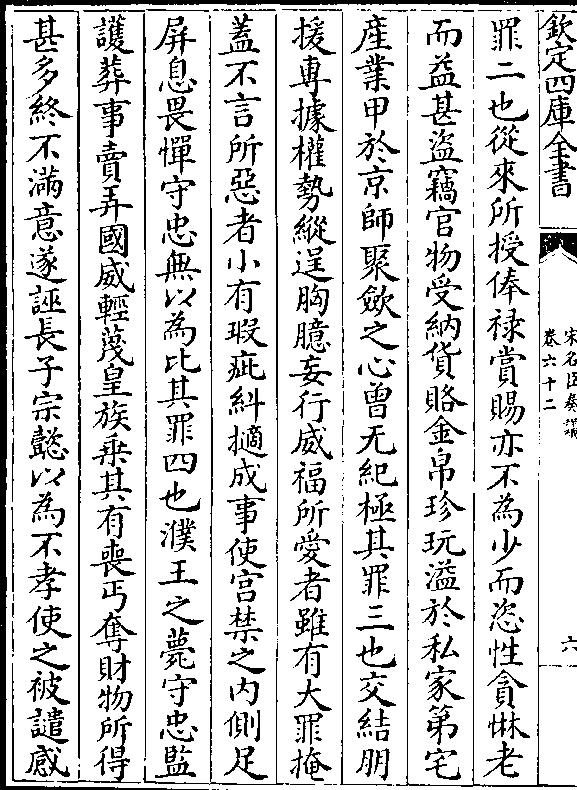 欽定四庫全書
宋名臣奏議
卷六十二
六
罪二也從來所授俸禄賞賜亦不為少而恣性貪惏老
而益甚盜竊官物受納貨賂金帛珍玩溢於私家第宅
産業甲於京師聚斂之心曽无紀極其罪三也交結朋
援專據權勢縱逞胸臆妄行威福所愛者雖有大罪掩
蓋不言所惡者小有瑕疵糾擿成事使宫禁之内側足
屏息畏憚守忠無以為比其罪四也濮王之薨守忠監
護葬事賣弄國威輕蔑皇族乗其有喪丐奪財物所得
甚多終不滿意遂誣長子宗懿以為不孝使之被譴感